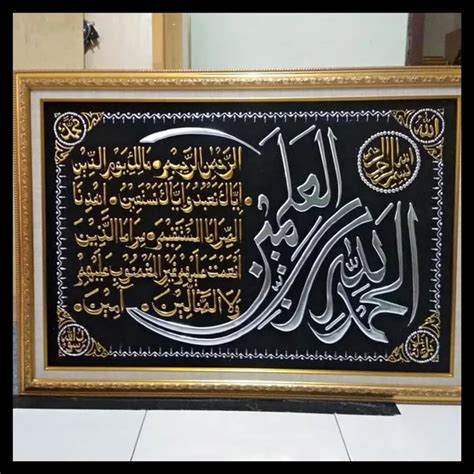 الله
محمد
بسم الله الرحمن الرحيم
الحمد لله رب العلمين
الرحمن الرحيم • مالك يوم الدين
• اياك نعبد واياك نستعين • اهدنا
الصراط المستقيم • صراط الذين
انعمت عليهم غير المغضوب عليهم
ولا الضالين • آمين •